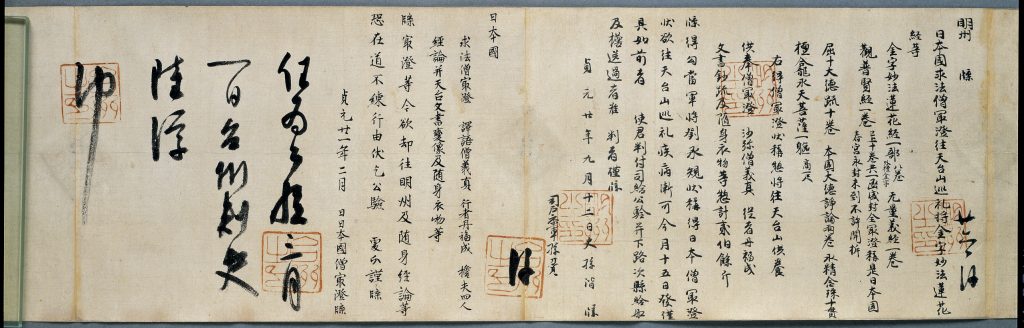 明州 牒
日本國求法僧㝡澄往天台山巡礼將金字妙法蓮花
經等
金字妙法蓮花經一部 八卷 外標金字 无量義經一卷
觀普賢經一卷 已上十卷共一函盛封全㝡澄稱是日本國
春宮永封未到不許開拆
屈十大德疏十卷 本國大德諍論兩卷 水精念珠十貫
檀龕水天菩薩一軀 高一尺
右得僧㝡澄狀稱㧾將往天台山供養
供奉僧㝡澄 沙弥僧義真 從者丹福成
文書鈔疏及隨身衣物等㧾計貳伯餘斤
牒得勾當軍將劉承規狀稱得日本僧㝡澄
狀欲往天台山巡礼疾病漸可今月十五日發謹
具如前者 使君判付司給公驗并下路次縣給舩
及檐送過者准 判者謹牒
貞元廿年九月十二日 孫階 牒
司戶叅軍孫
日本國
求法僧㝡澄 譯語僧義真 行者丹福成 擔夫四人
經論并天台文書變像及随身衣物等
牒㝡澄等今欲却往明州及随身經論等
恐在道不練行由伏乞公驗 處分謹牒
貞元廿一年二月 日日本國僧㝡澄牒
任為公驗三月
一日台州刾史
陸淳
印